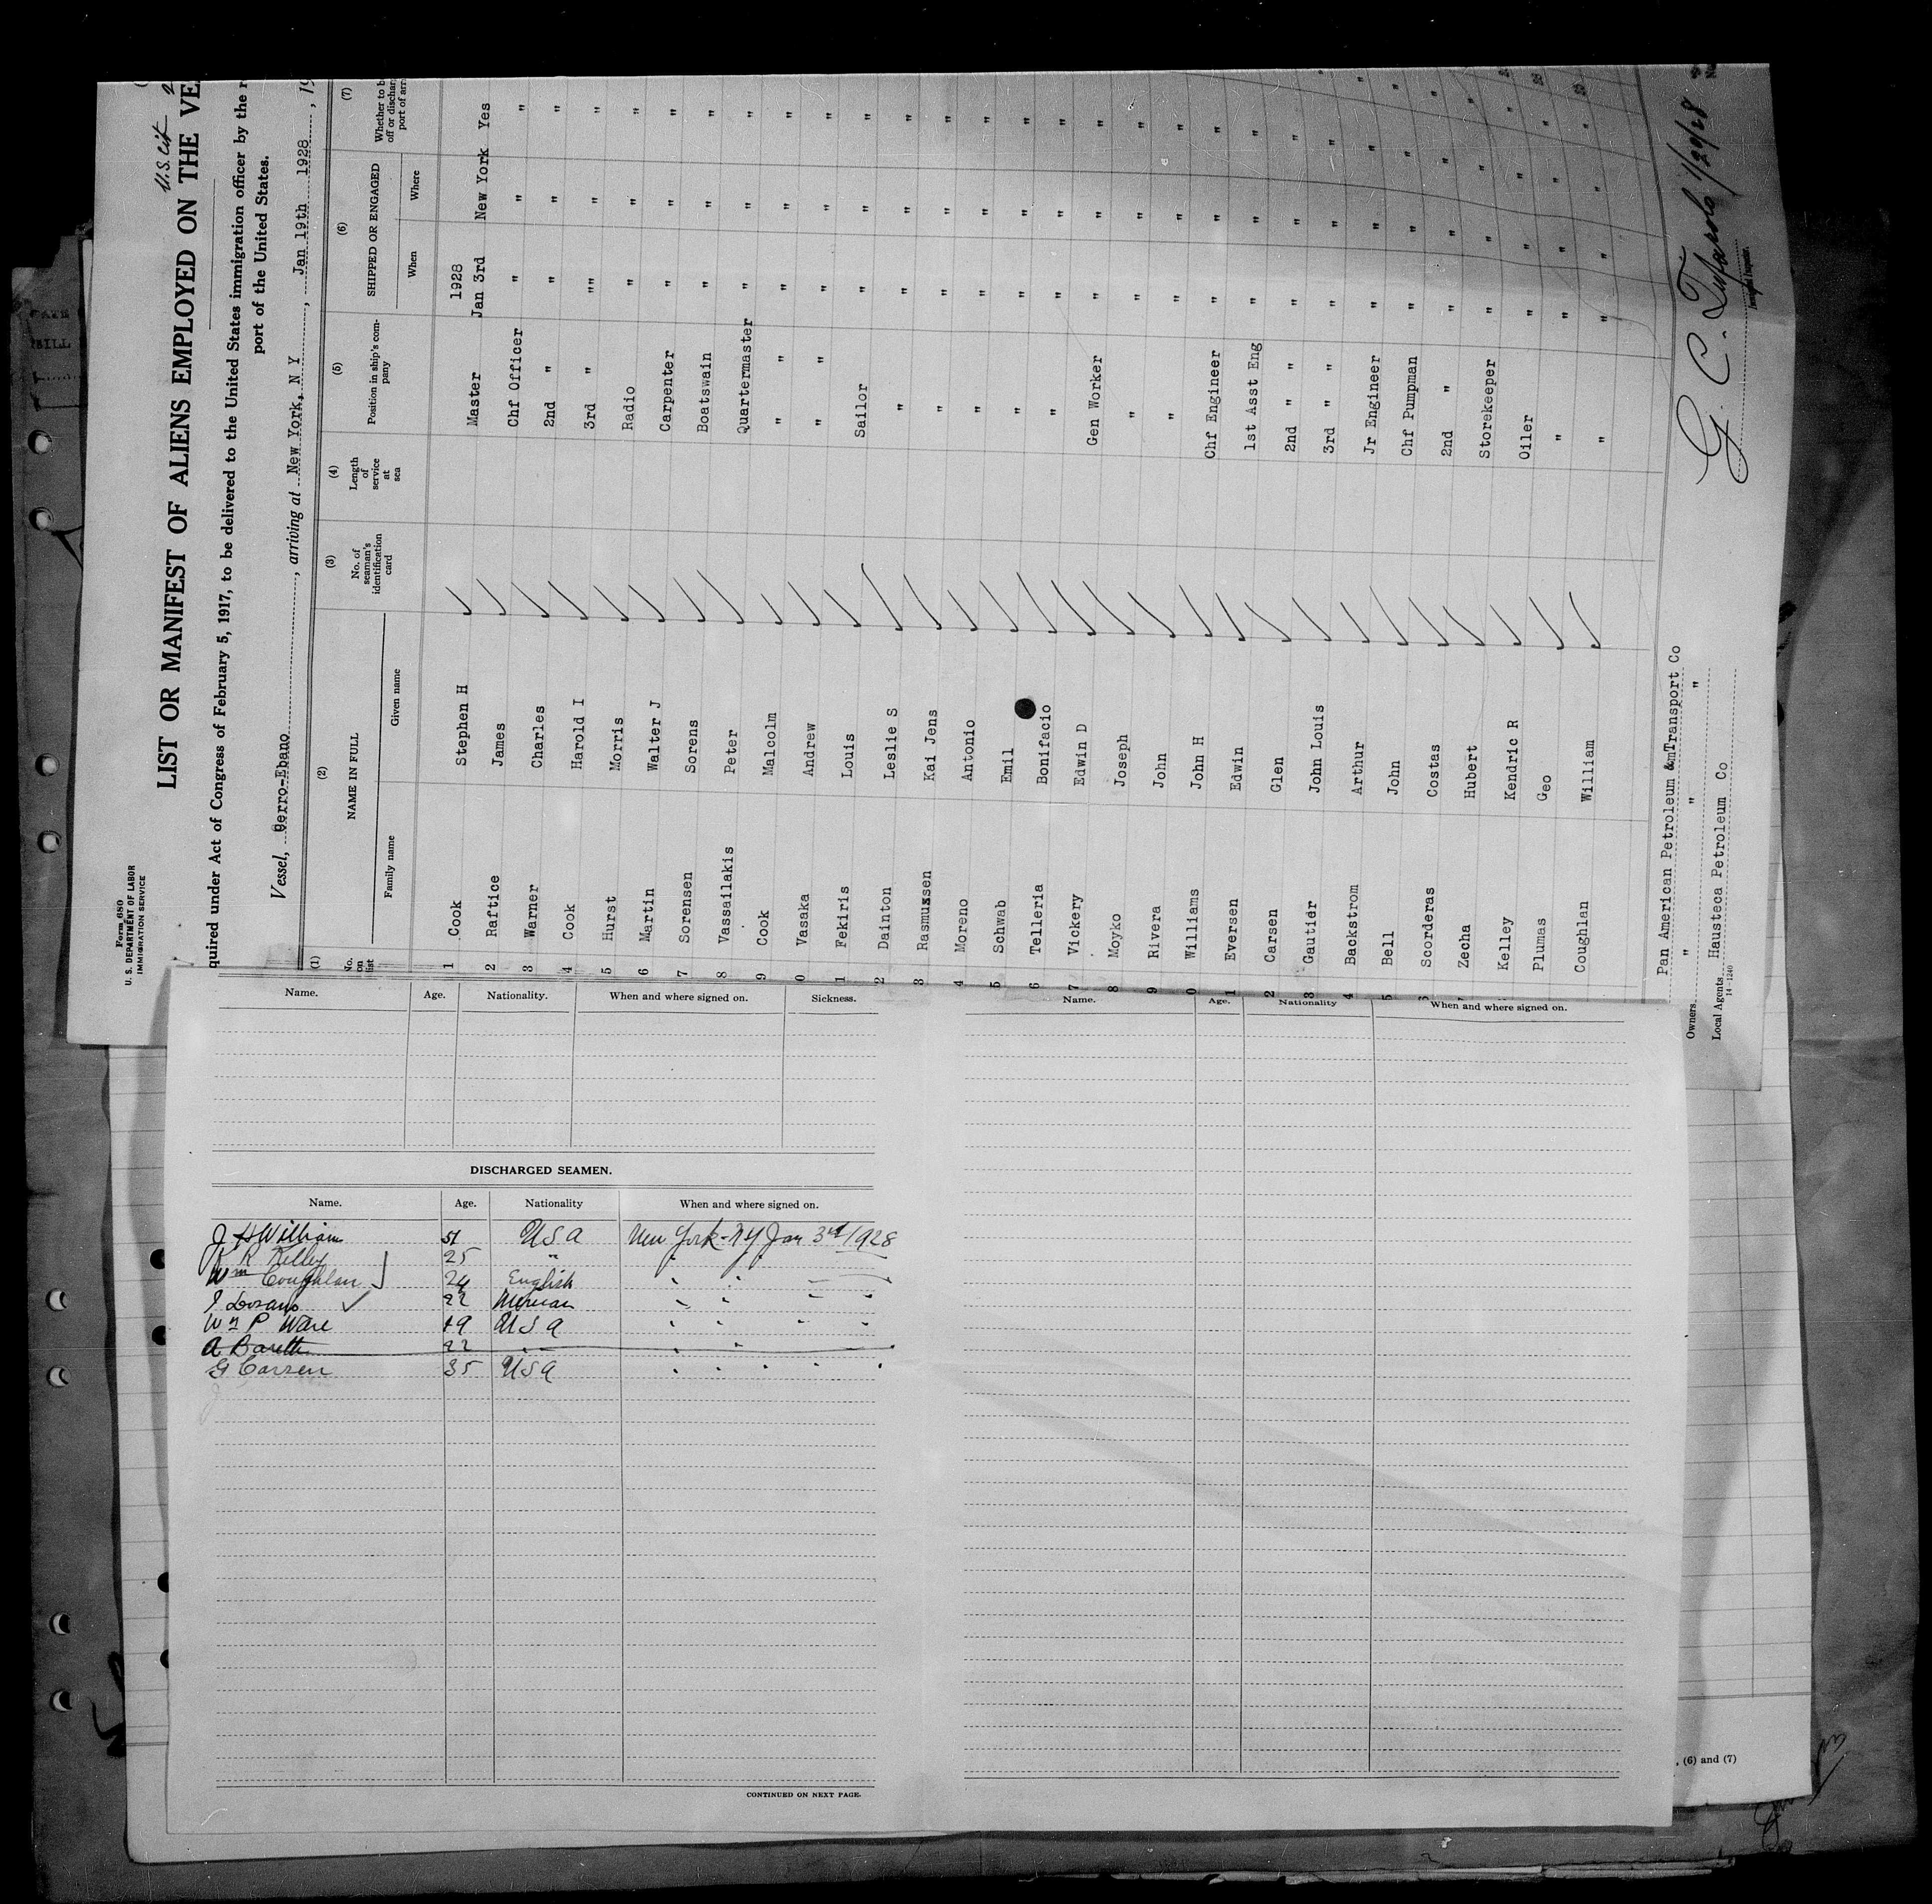 Form 680
U. S. DEPARTMENT OF LABOR
IMMIGRATION SERVICE
U.S. Cit
LIST OR MANIFEST OF ALIENS EMPLOYED ON THE VE
quired under Act of Congress of February 5, 1917, to be delivered to the United States immigration officer by the r
port of the United States.
Vessel, Cerro-Ebano, arriving at New York, N Y, Jan 19th 1928, 19
(1) (2) (3) (4) (5) (6) (7)
No. on list NAME IN FULL No. of seaman's identification card Length of service at sea Position in ship's company SHIPPED OR ENGAGED Whether to b off or dischar port of arr
Family name Given name When Where
1928
1 Cook Stephen H Master Jan 3rd New York Yes
2 Raftice James Chf Officer " " "
3 Warner Charles 2nd " " " "
4 Cook Harold I 3rd " "" " "
5 Hurst Morris Radio " " "
6 Martin Walter J Carpenter " " "
7 Sorensen Sorens Boatswain " " "
8 Vassailakis Peter Quartermaster " " "
9 Cook Malcolm " " " " "
0 Vasaka Andrew " " " " "
1 Fekiris Louis Sailor " " "
2 Dainton Leslie S " " " "
3 Rasmussen Kai Jens " " " "
4 Moreno Antonio " " " "
5 Schwab Emil " " " "
6 Telleria Bonifacio " " " "
7 Vickery Edwin D Gen Worker " " "
8 Moyko Joseph " " " "
9 Rivera John " " " "
0 Williams John H Chf Engineer " " "
1 Eversen Edwin 1st Asst Eng " " "
2 Carsen Glen 2nd " " " " "
3 Gautier John Louis 3rd " " " " "
4 Backstrom Arthur Jr Engineer " " "
5 Bell John Chf Pumpman " " "
6 Scorderas Costas 2nd " " " "
Zecha Hubert Storekeeper " " "
Kelley Kendric R Oiler " " "
Plumas Geo " " " "
Coughlan William " " " "
Owners Pan American Petroleum & Transport Co
" " "
Local Agents Hausteca Petroleum Co
14-1240
G. C. 1/20/28
Immigrant Inspector.
Name. Age. Nationality. When and where signed on. Sickness.
DISCHARGED SEAMEN.
Name. Age. Nationality When and where signed on.
J H William 51 USA New York - NY Jan 3rd 1928
K R Kelley 25 " " "
Wm Coughlan 24 English " "
Lozano 22 Mexican " " " "
Wm P Ware 19 USA " " " "
A Barette 22 " " "
G Carsen 35 USA " " " " "
CONTINUED ON NEXT PAGE.
Name. Age. Nationality When and where signed on.
. (6) and (7)